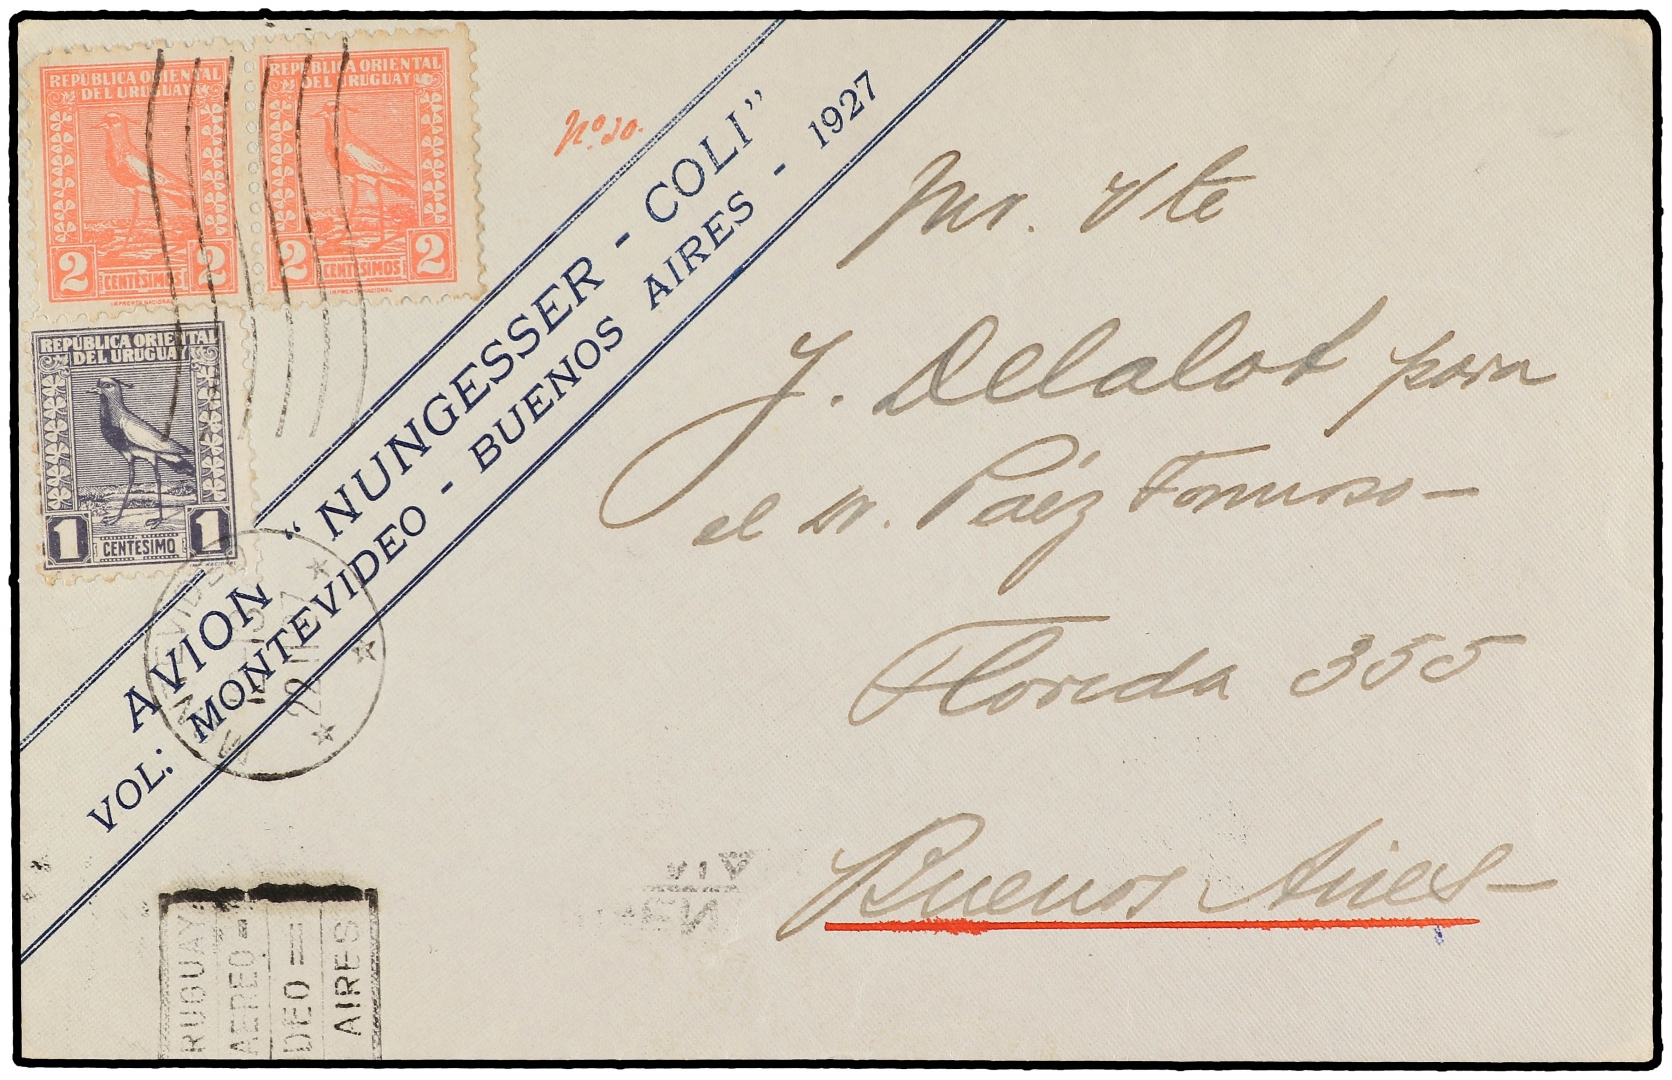 REPUBLICA ORIENTAL
DEL URUGUAY
2 2
CENTESIMOS
IMPRENTA NACIONAL
REPUBLICA ORIENTAL
DEL URUGUAY
2 2
CENTESIMOS
IMPRENTA NACIONAL
REPUBLICA ORIENTAL
DEL URUGUAY
1 1
CENTESIMO
Nº 20.
AVION "NUNGESSER - COLI"
VOL: MONTEVIDEO - BUENOS AIRES - 1927
Mr. Vte
J. Delalot para
el Dr. Páez Formoso-
Florida 355
Buenos Aires-
MONTEVIDEO
RUGUAY
AEREO=
DEO=
AIRES